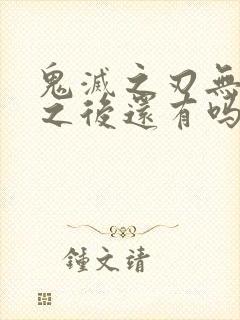 鬼滅之刃無
之後還有嗎
鍾文靖